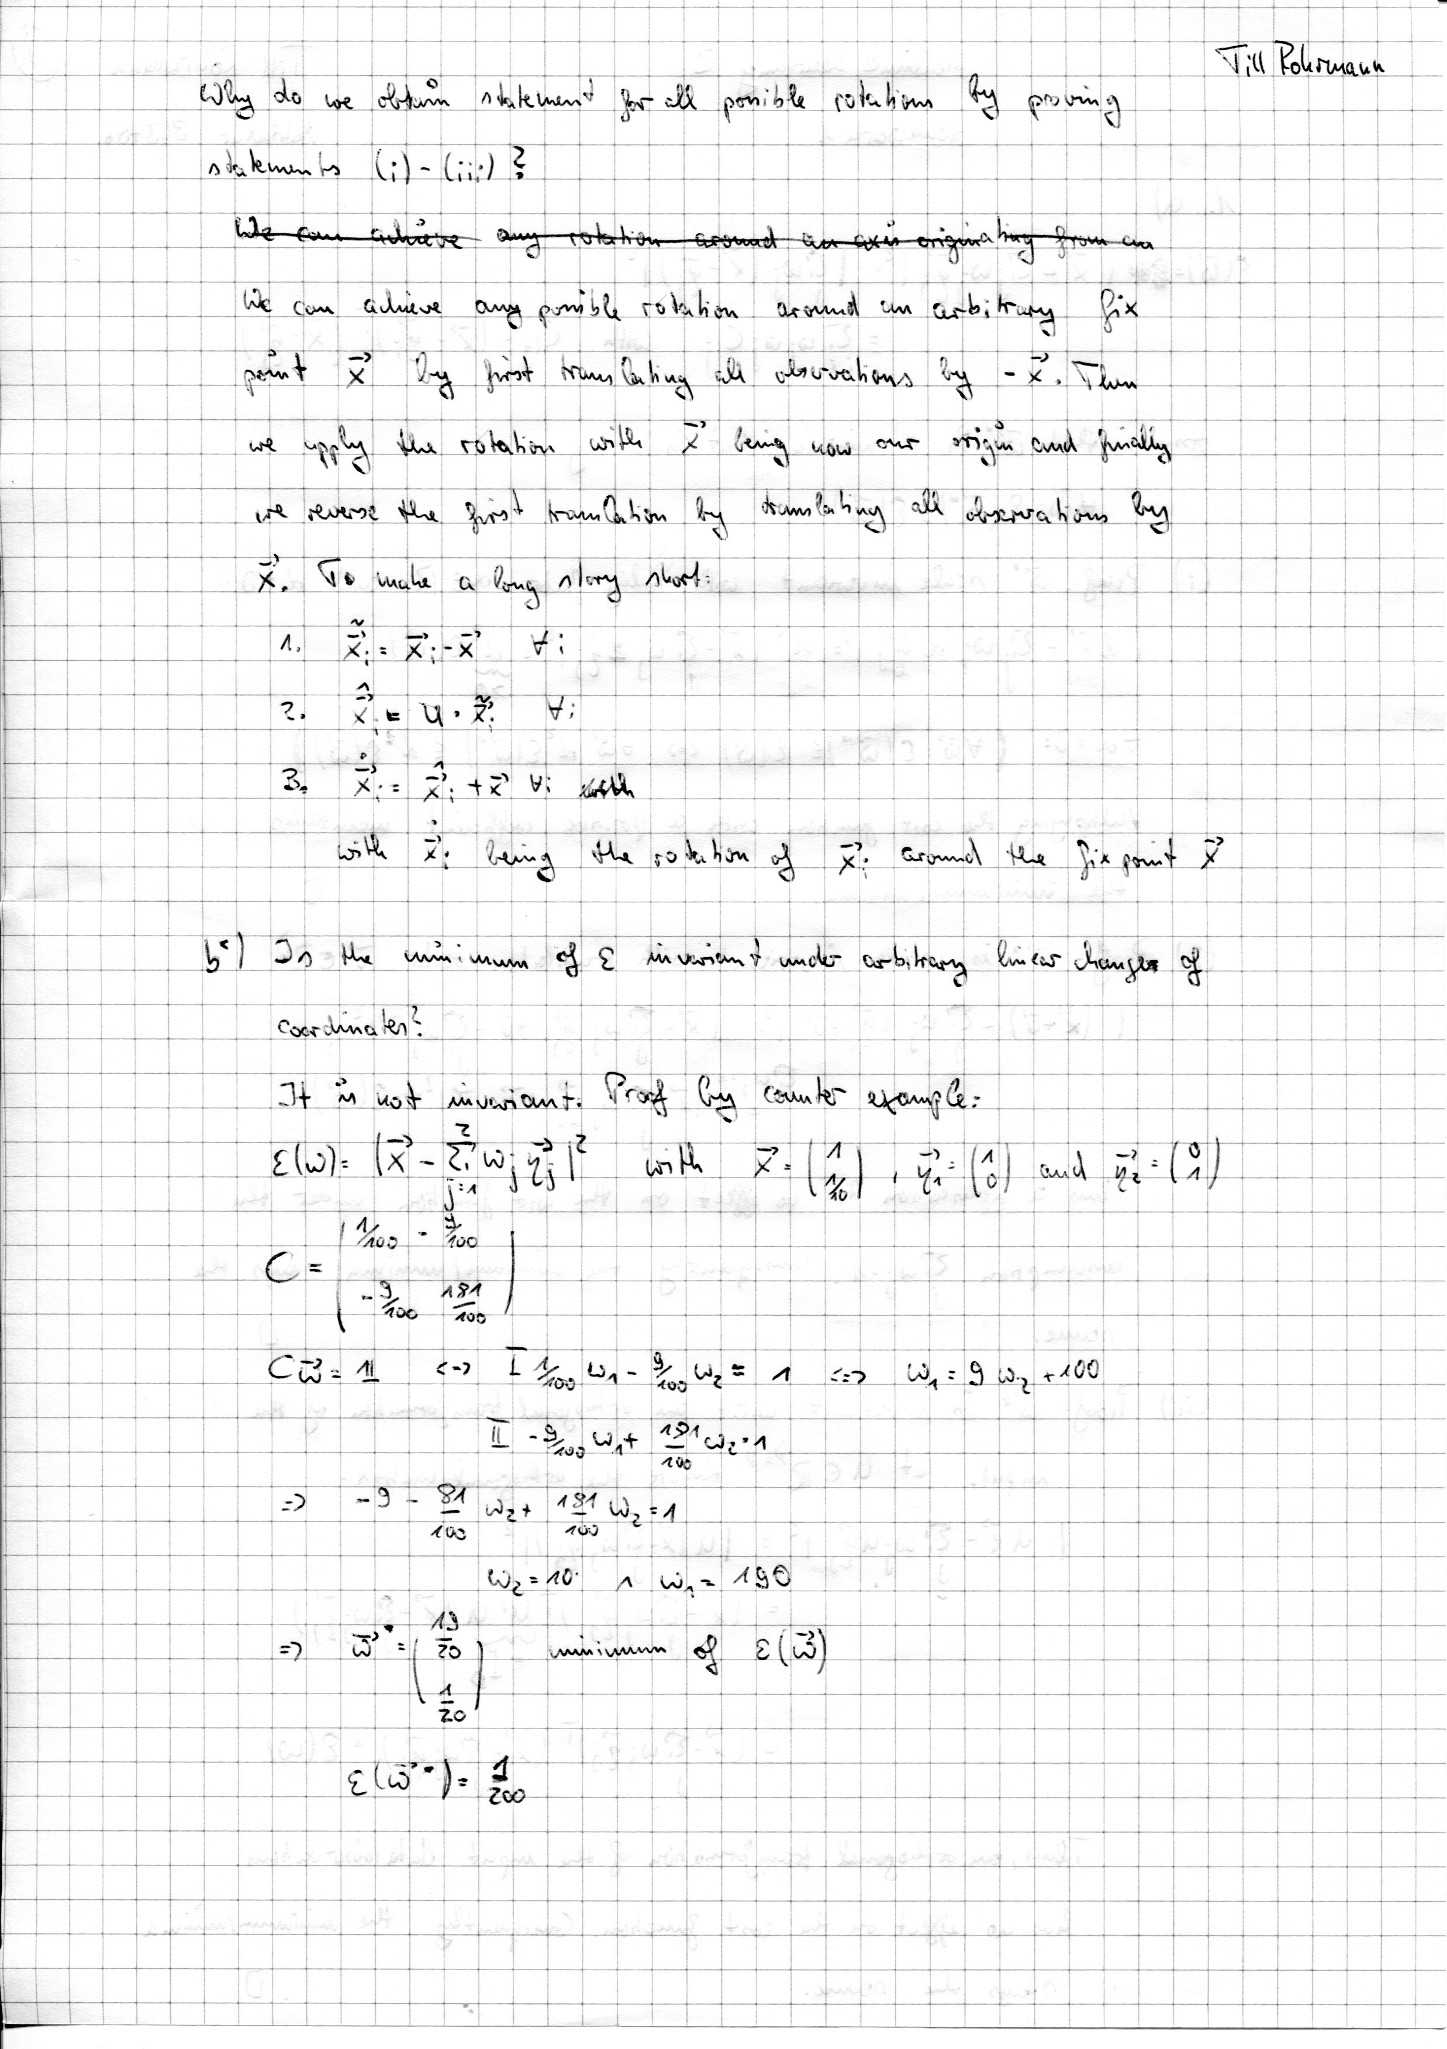 Till Rohrmann
Why do we obtain statement for all possible rotations by proving
statements (i) - (iii) ?
We can achieve any rotation around an axis originating from an
We can achieve any possible rotation around an arbitrary fix
point x⃗ by first translating all observations by - x⃗. Then
we apply the rotation with x⃗ being now our origin and finally
we reverse the first translation by translating all observations by
x⃗. To make a long story short:
1. x̃⃗ᵢ = x⃗ᵢ - x⃗ ∀i
2. x̂⃗ᵢ = U · x̃⃗ᵢ ∀i
3. ẋ⃗ᵢ = x̂⃗ᵢ + x⃗ ∀i with
with ẋ⃗ᵢ being the rotation of x⃗ᵢ around the fix point x⃗
b) Is the minimum of ε invariant under arbitrary linear changes of
coordinates?
It is not invariant. Proof by counter example:
ε(w) = |x⃗ - Σ_{j=1}^{2} w_j η⃗_j|² with x⃗ = (1, 1/10), η⃗₁ = (1, 0) and η⃗₂ = (0, 1)
C = (1/100 -9/100
-9/100 181/100)
C w⃗ = 1 <=> I 1/100 w₁ - 9/100 w₂ = 1 <=> w₁ = 9 w₂ + 100
II -9/100 w₁ + 181/100 w₂ = 1
=> -9 - 81/100 w₂ + 181/100 w₂ = 1
w₂ = 10 ∧ w₁ = 190
=> w⃗* = (19/20, 1/20) minimum of ε(w⃗)
ε(w⃗*) = 1/200